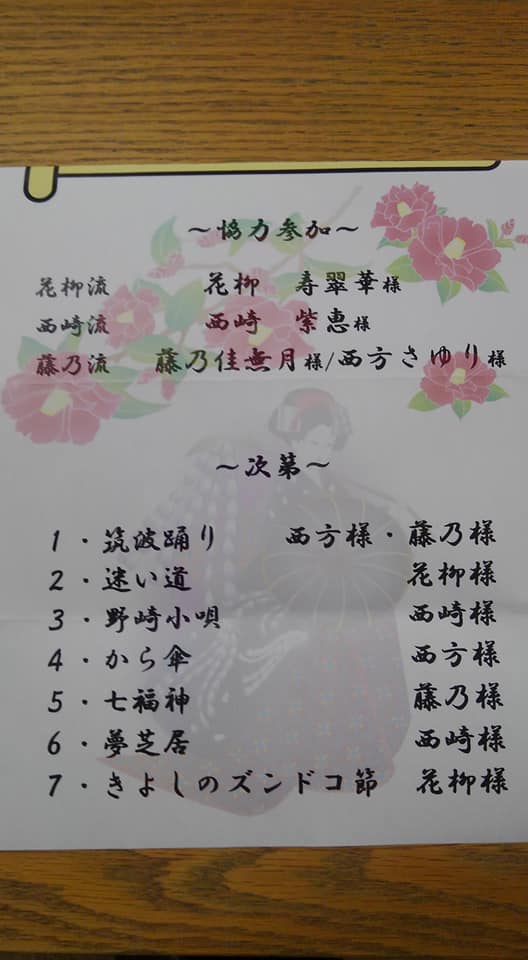 ～協力参加～
花柳流 花柳 寿翠華様
西崎流 西崎 紫惠様
藤乃流 藤乃佳無月様/西方さゆり様
～次第～
1・筑波踊り 西方様・藤乃様
2・迷い道 花柳様
3・野崎小唄 西崎様
4・から傘 西方様
5・七福神 藤乃様
6・夢芝居 西崎様
7・きよしのズンドコ節 花柳様